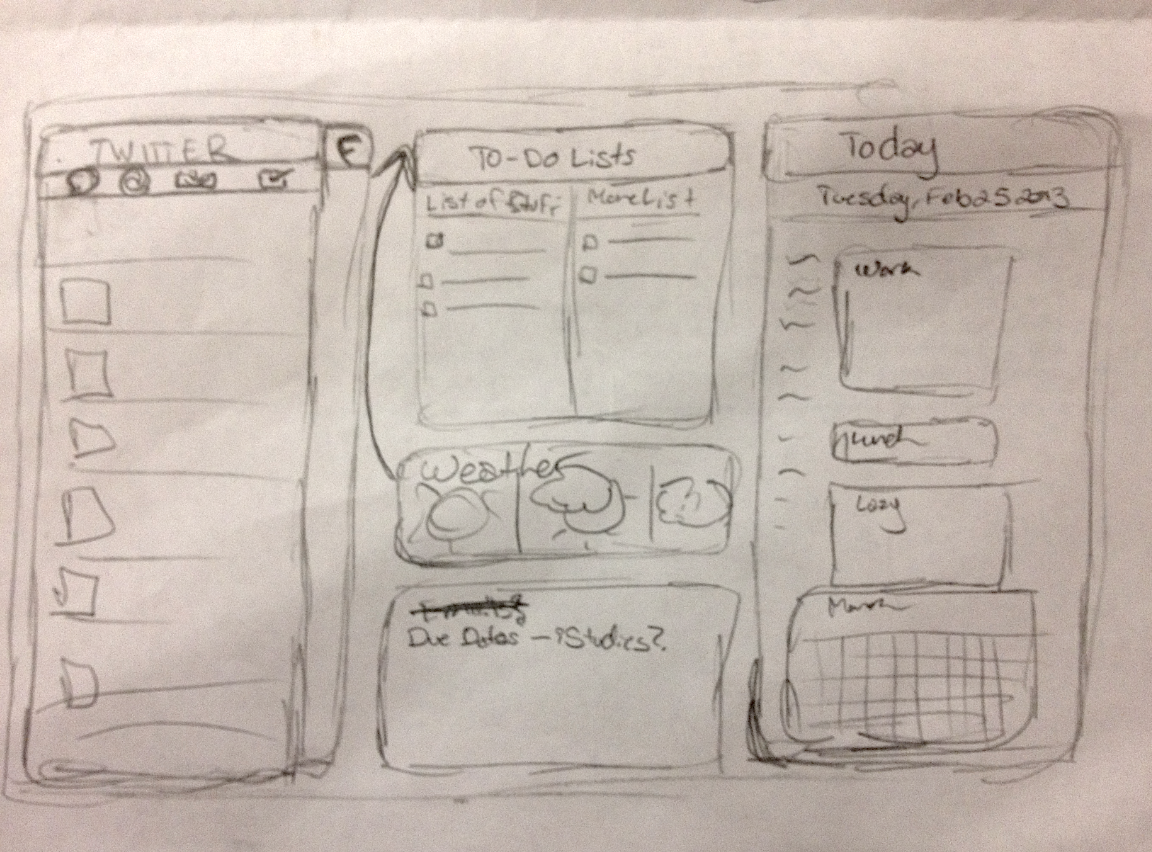 TWITTER
F
@
TO-DO Lists
List of Stuff
More List
Weather
Due Dates — ?Studies?
Today
Tuesday, Feb 25 2013
Work
Lunch
Lazy
March